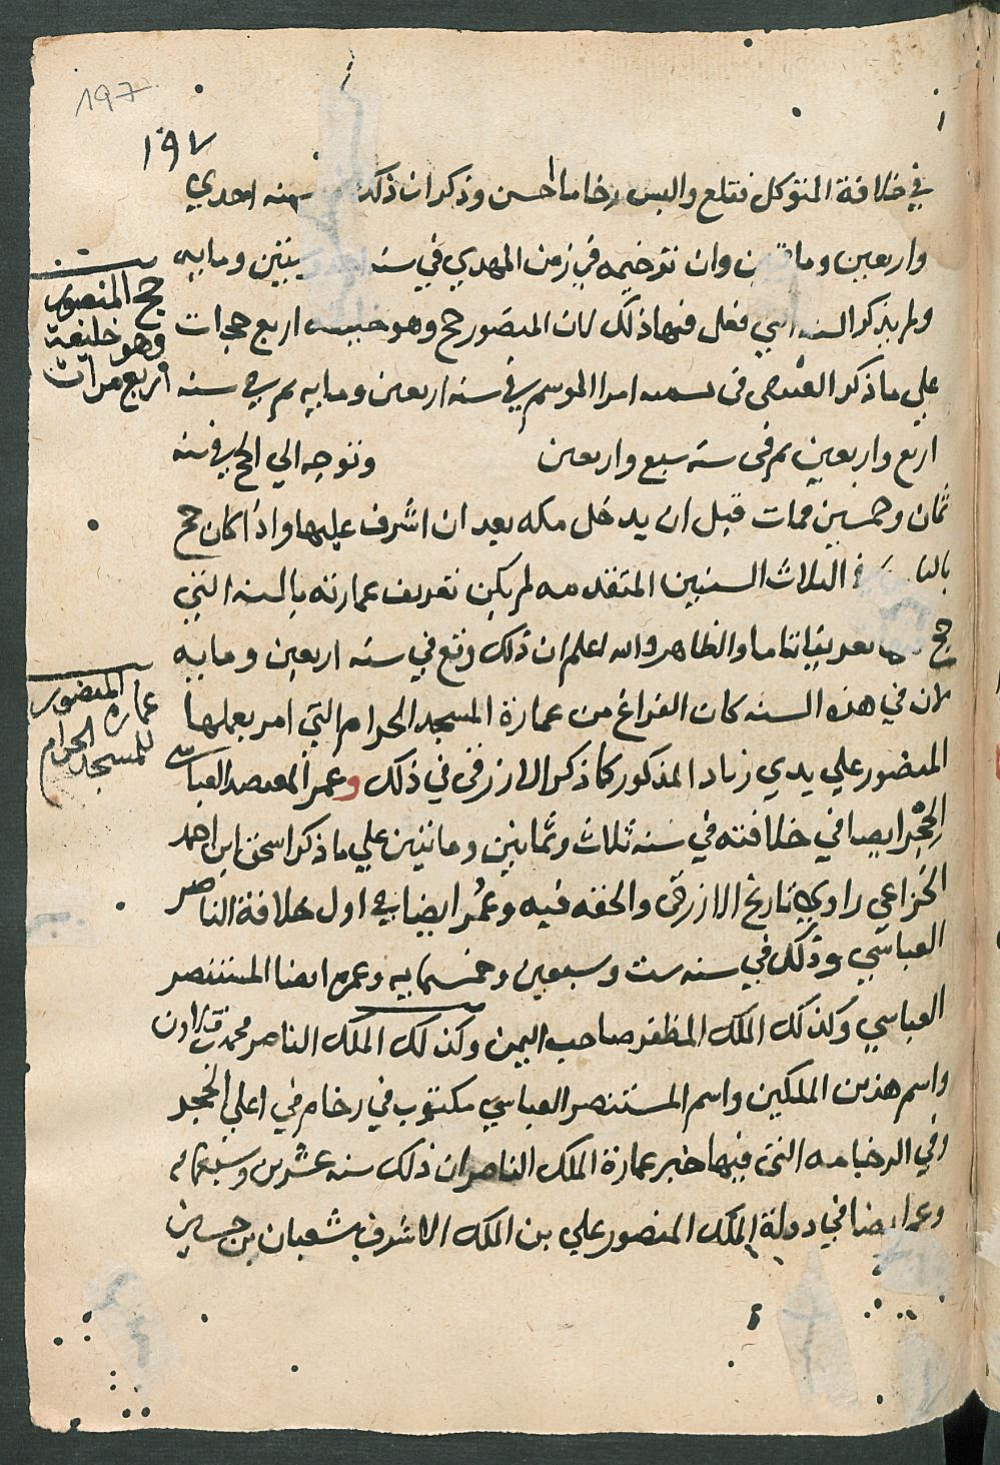 197
١٩٧
في خلافة المتوكل فقلع والبس رخاما احسن وذكر ان ذلك سنه احدي
واربعين وما وان ترخيمه في زمن المهدي في سنه وما يه
ولم يذكر السنه التي فعل فيها ذلك لان المنصور حج وهو خليفه اربع حجات
علي ما ذكر العتيقي في امرا الموسم في سنه اربعين وما يه ثم في سنه
اربع واربعين ثم في سنة سبع واربعين وتوجه الي الحج في سنه
ثمان وخمسين فمات قبل ان يدخل مكه بعد ان اشرف عليها واذا كان حج
في الثلاث السنين المتقدمه لم يكن تعريف عمارته بالسنه التي
حج تعريفا تاما والظاهر والله اعلم ان ذلك وقع في سنه اربعين وما يه
لان في هذه السنه كان الفراغ من عمارة المسجد الحرام التي امر بعملها
المنصور علي يدي زياد المذكور كما ذكر الازرقي في ذلك وعمر المعتضد العباسي
الحجر ايضا في خلافته في سنه ثلاث وثمانين وماتين علي ما ذكر اسحق ابن احمد
الخزاعي راوي تاريخ الازرقي والحقه فيه وعمر ايضا في اول خلافة الناصر
العباسي وذلك في سنه ست وسبعين وخمسما يه وعمره ايضا المستنصر
العباسي وكذلك الملك المظفر صاحب اليمن وكذلك الملك الناصر محمد قلاوون
واسم هذين الملكين واسم المستنصر العباسي مكتوب في رخام في اعلي الحجر
وفي الرخامه التي فيها خبر عمارة الملك الناصر ان ذلك سنه عشرين وسبعمائه
وعمر ايضا في دولة الملك المنصور علي بن الملك الاشرف شعبان بن حسين
حج المنصور
وهو خليفة
اربع مرات
عمارة المنصور
للمسجد الحرام